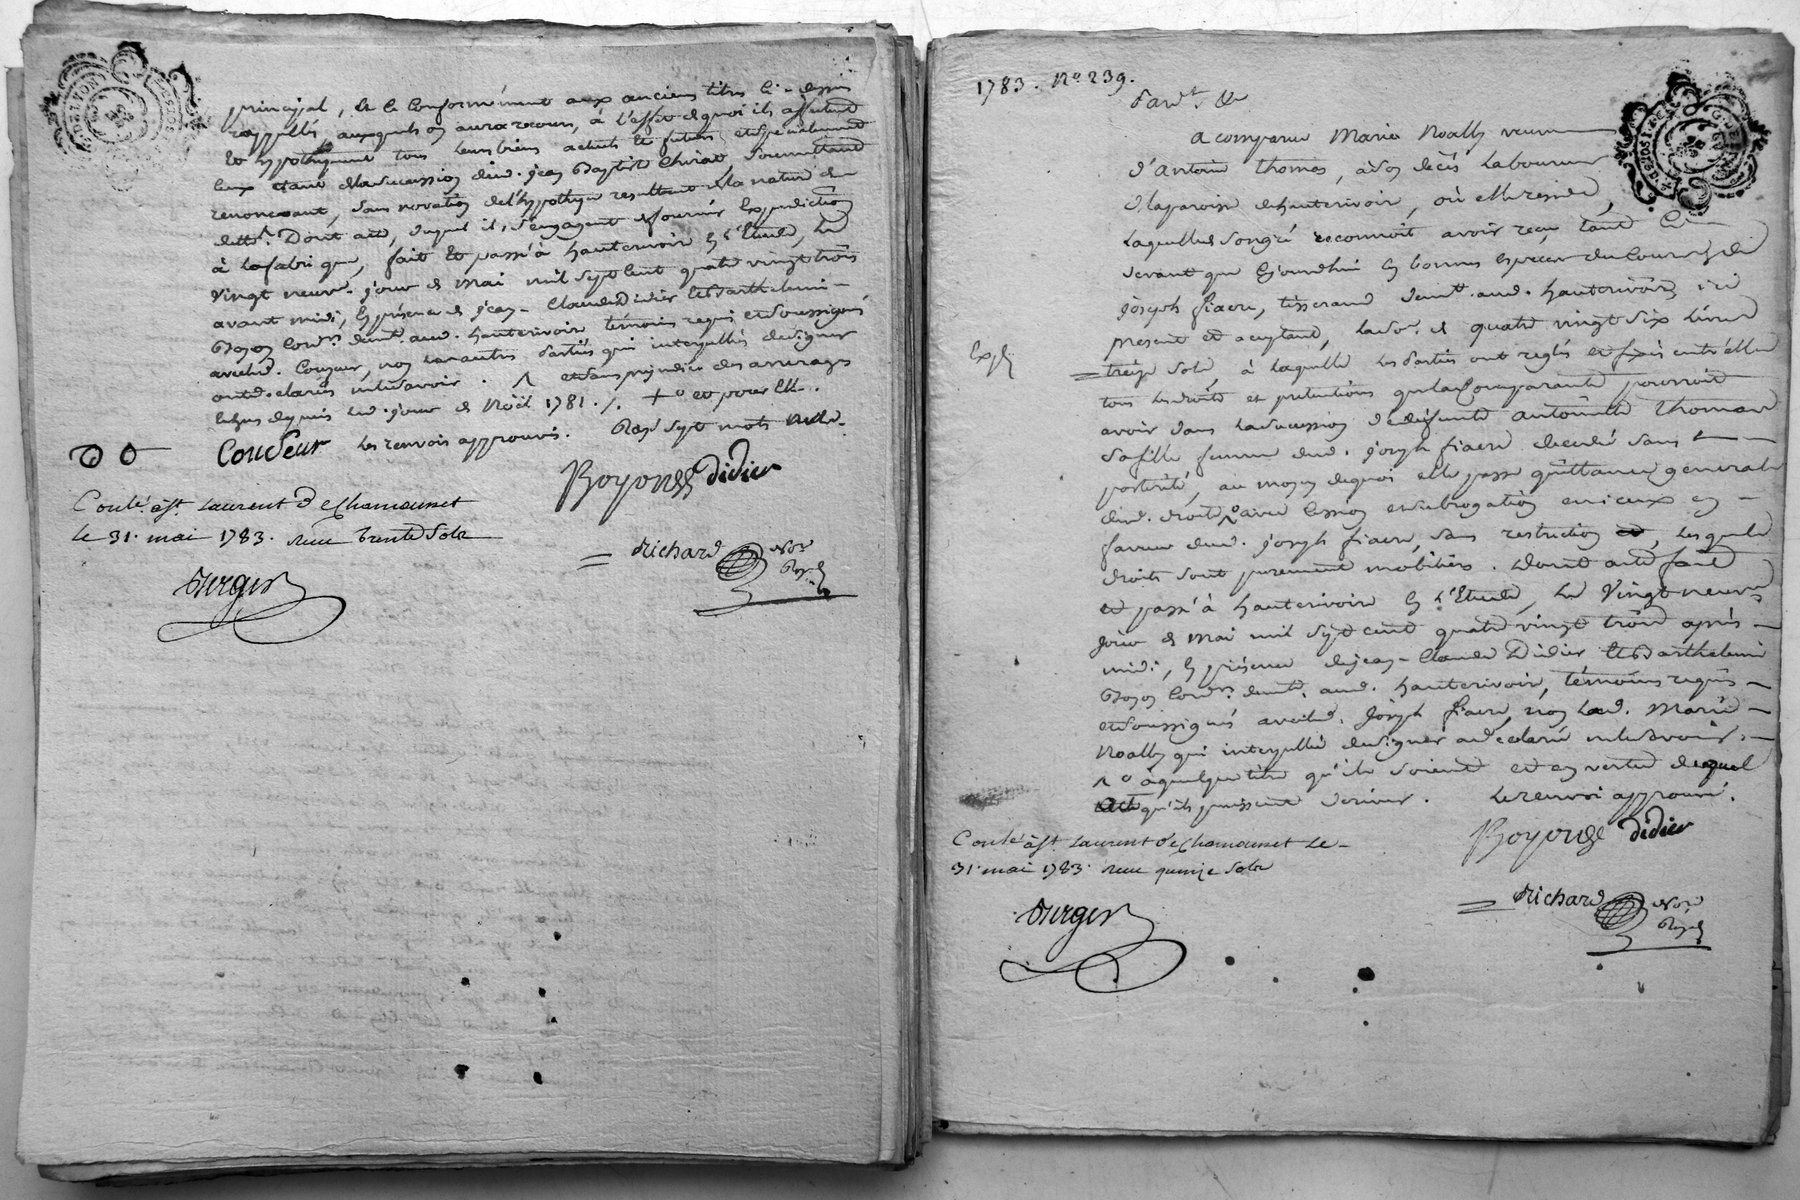 principal, & ce Conformément aux anciens titres Ci-dessus
rappellés, auxquels on aura recours, à l'effet de quoi ils affectent
et hypothequent tous leurs biens actuels et futurs et spécialement
ceux de la succession dud. jean Baptiste Chirat, soumettant
renonceant, sans novation de l'hypotheque resultant de la nature du
Dont acte, duquel ils s'engagent de fournir Expedition
à la fabrique, fait et passé à hauterivoire En l'Etude, le
Vingt neuf. jour de Mai mil Sept Cent quatre vingt trois
avant midi, En présence de jean-Claude Didier et Barthelemi
Boyon Cord.rs demt. aud. hauterivoire témoins requis et soussignés
avec led. Couzeur, non les autres parties qui interpellés de signer
ont declaré ne le savoir. et sans prejudice des arrerages
echus depuis led. jour de Noël 1781. /. + et pour Elle.
Couseur Les renvois approuvés. Rayé Sept mots nuls.
Boyon Didier
Conlé. à St. Laurent De Chamousset
Le 31. mai 1783. Reçu trente Sols
Richard Nore Royal
Berger
1783. No. 239.
Pardt. &c
a comparue Marie Noally veuve
d'Antoine Thomas, à son décès Laboureur
de la paroisse de hauterivoire, où elle reside,
Laquelle de son gré reconnoit avoir reçu tant Ci-
devant que Cejourdhui En bonnes Especes du Cours de
joseph fiacre, tisserand demt. aud. hauterivoire, ici
present et acceptant, la So. de quatre vingt six Livres
Exp.
treize Sols à laquelle les parties ont reglés et fixés entr'elles
tous les droits et pretentions que la Comparante pourroit
avoir dans la succession de defunte antoinette Thomas
sa fille femme dud. joseph fiacre decedée sans
posterité, au moyen de quoi elle passe quittance generale
dud. droits avec Cession et subrogation en iceux en
faveur dud. joseph fiacre, sans restriction, lesquels
droits sont purement mobiliers. Dont acte fait
et passé à hauterivoire En l'Etude, le Vingt neuf
jour de Mai mil Sept cent quatre vingt trois après
midi, En présence de jean-Claude Didier et Barthelemi
Boyon Cord.rs demt. aud. hauterivoire, témoins requis
et soussignés avec led. Joseph fiacre, non lad. Marie
Noally qui interpellée de signer a declaré ne le savoir.
à quelque titre qu'ils soient et en vertu de quel
acte qu'ils puissent deriver. Le renvoi approuvé.
Boyon Didier
Conlé. à St. Laurent De Chamousset Le
31. mai 1783. Reçu quinze Sols
Richard Nore Royal
Berger